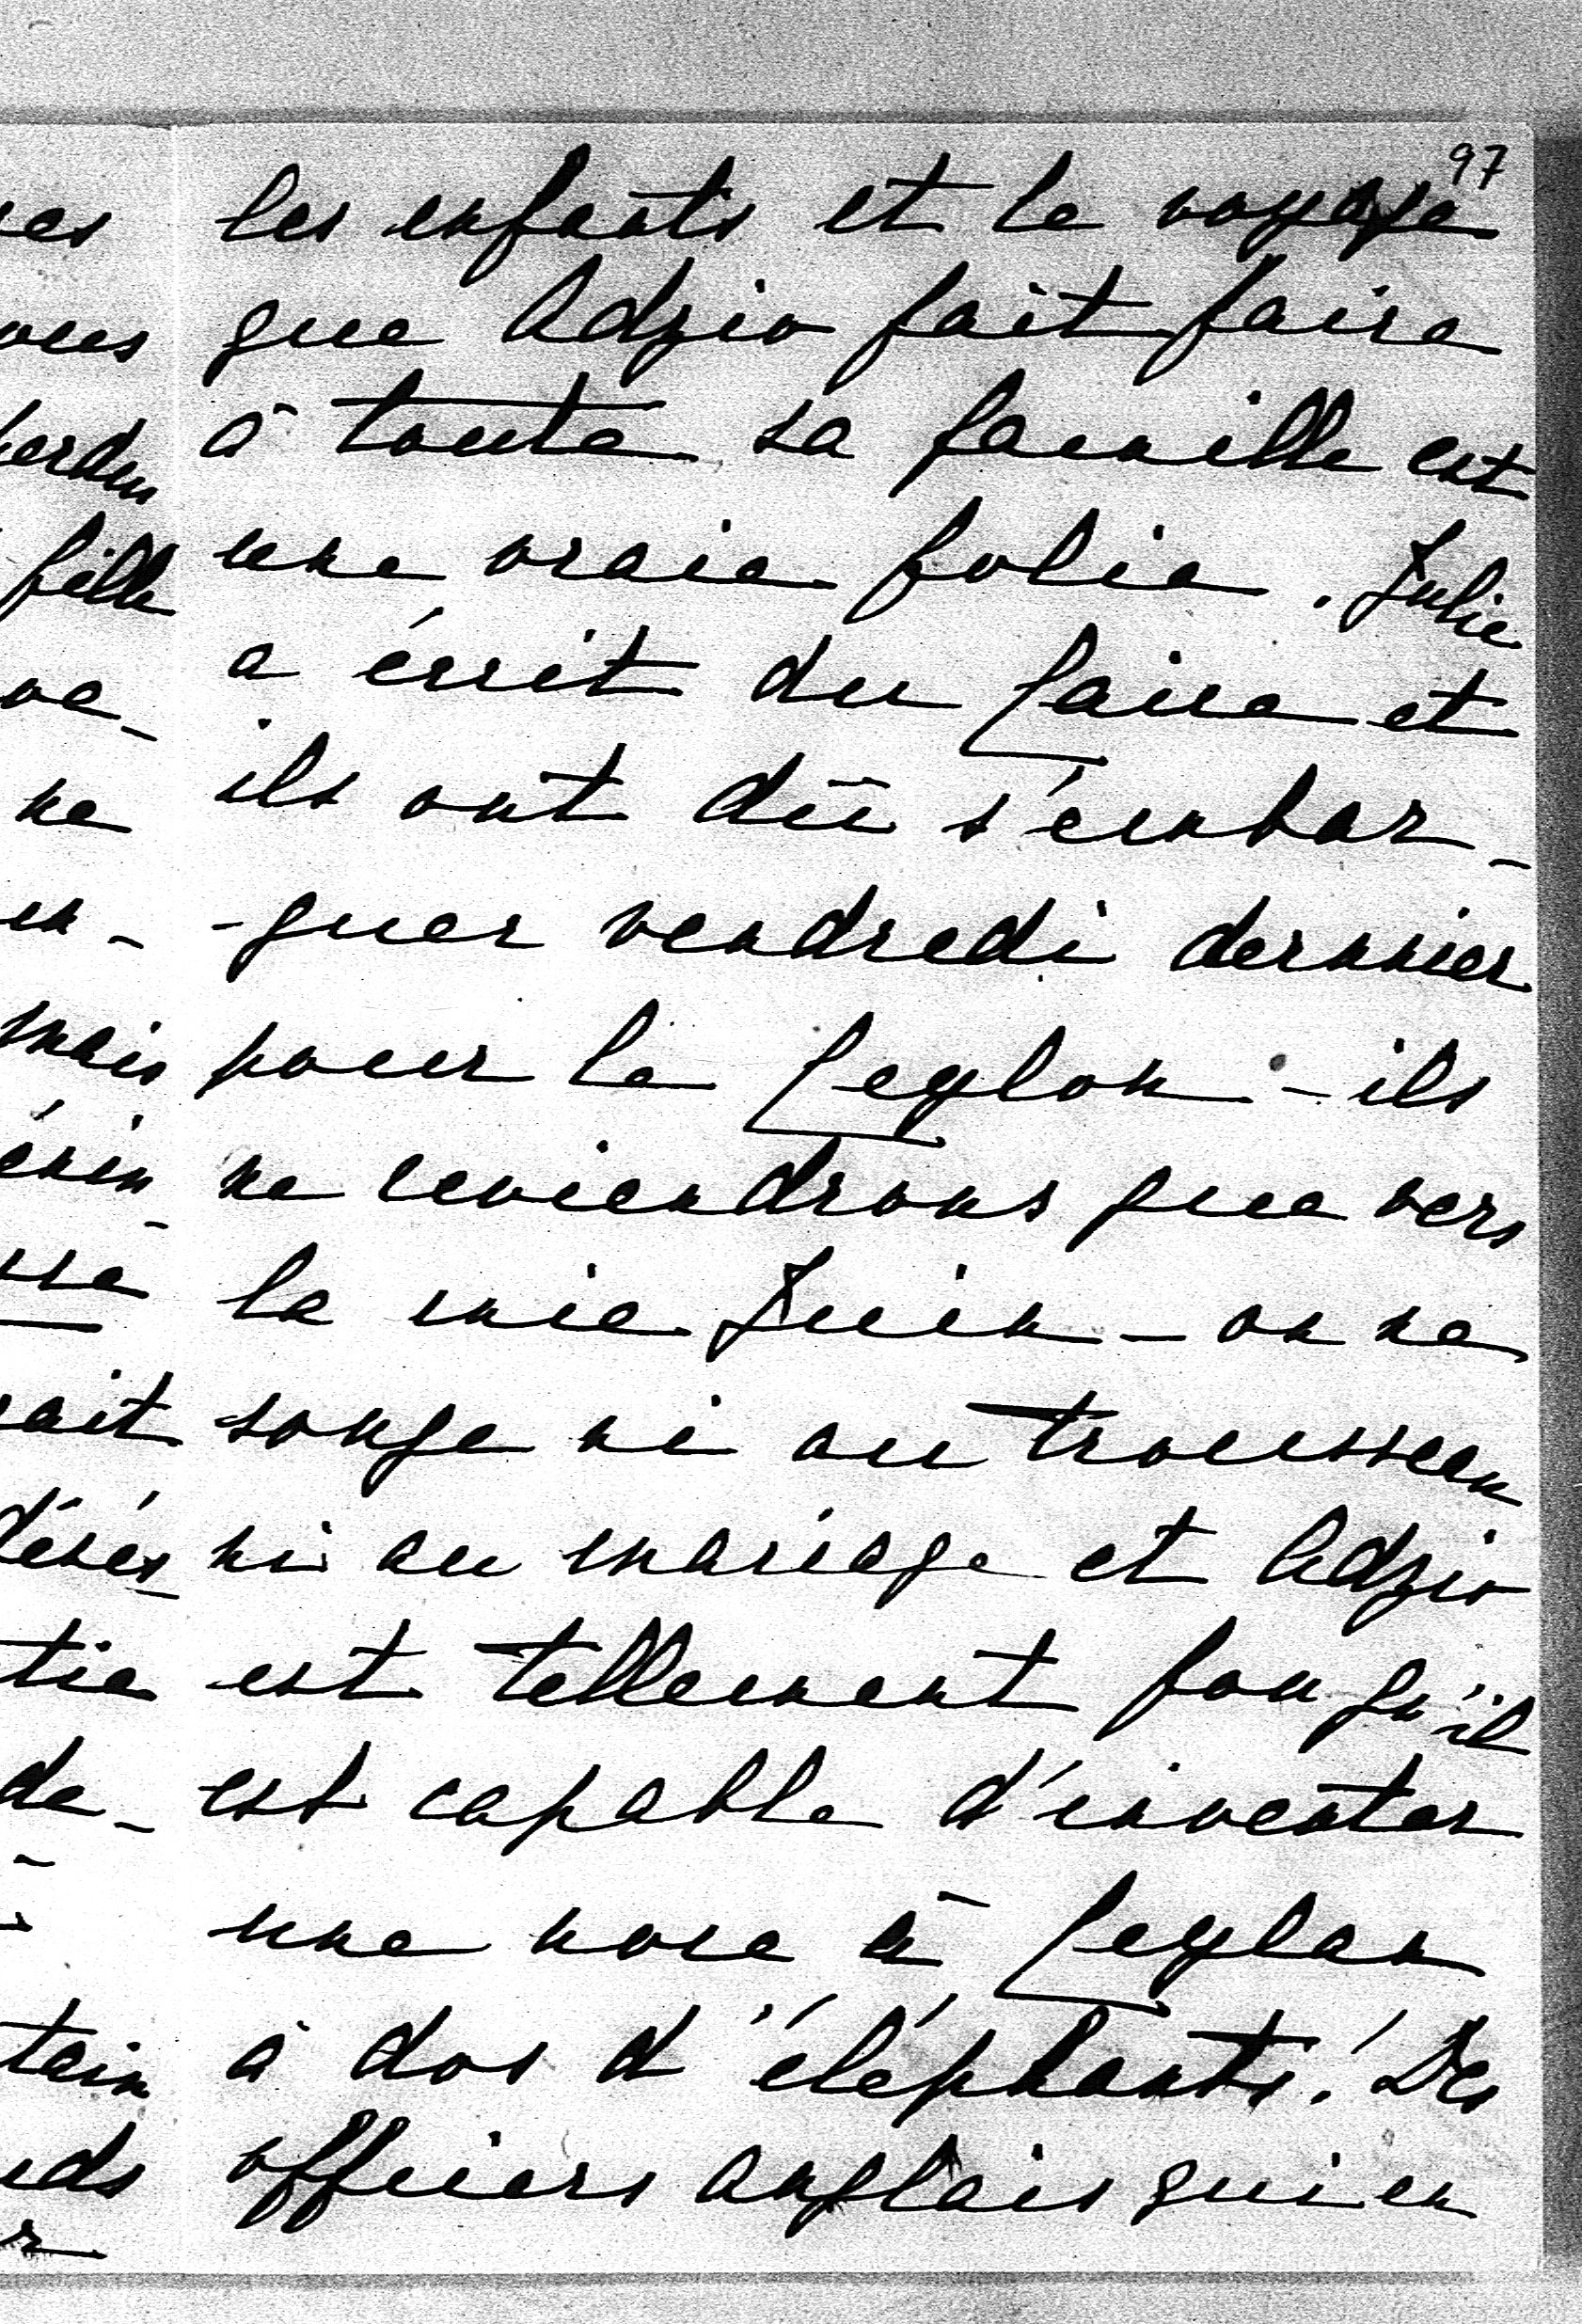 97
les enfants et le voyage
que Adzio fait faire
à toute sa famille est
une vraie folie. Julie
a écrit du Caire et
ils ont dû s'embar-
-quer vendredi dernier
pour le Ceylon - ils
ne reviendrons que vers
la mie Juin - on ne
songe ni au trousseau
ni au mariage et Adzio
est tellement fou qu'il
est capable d'inventer
une noce à Ceylan
à dos d'éléphants! Des
officiers anglais qui en